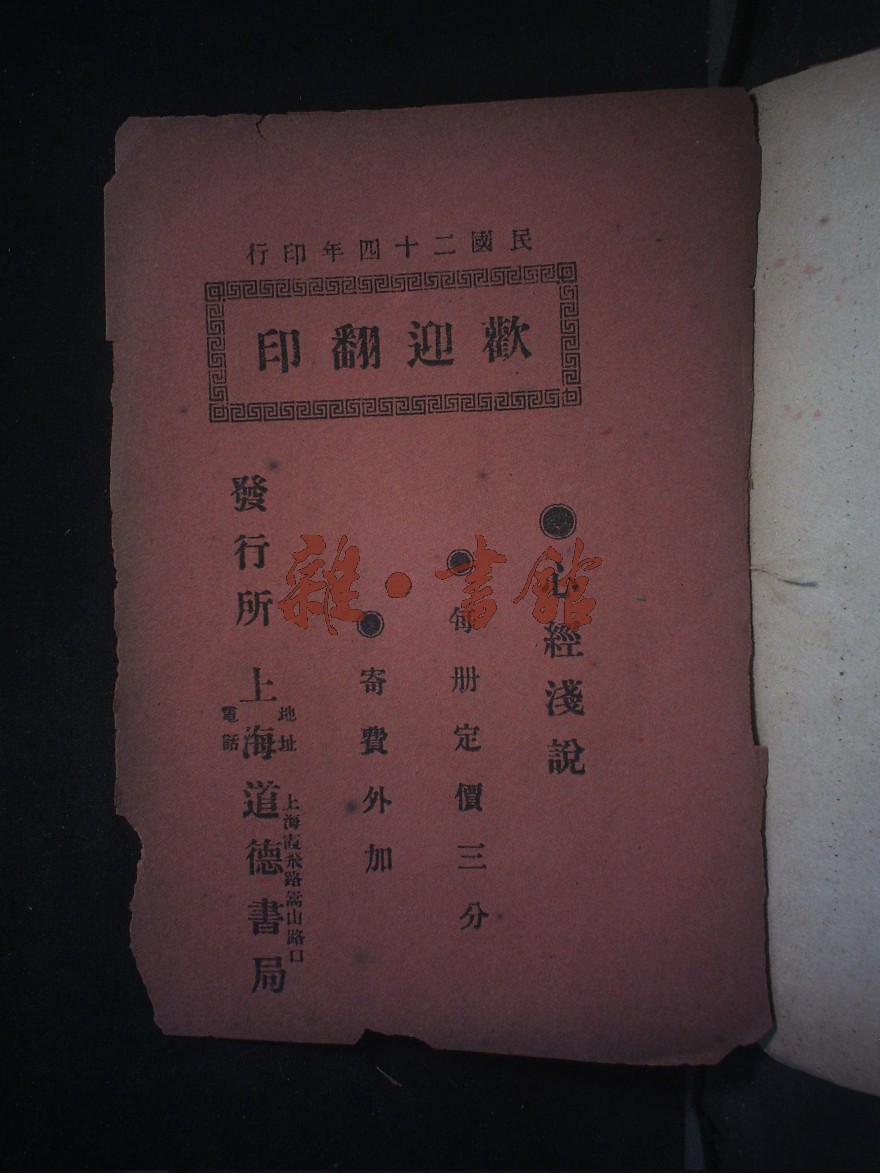 民國二十四年印行
歡迎翻印
心經淺說
每册定價三分
寄費外加
發行所 上海道德書局
地址 上海霞飛路嵩山路口
電話
雜·書館